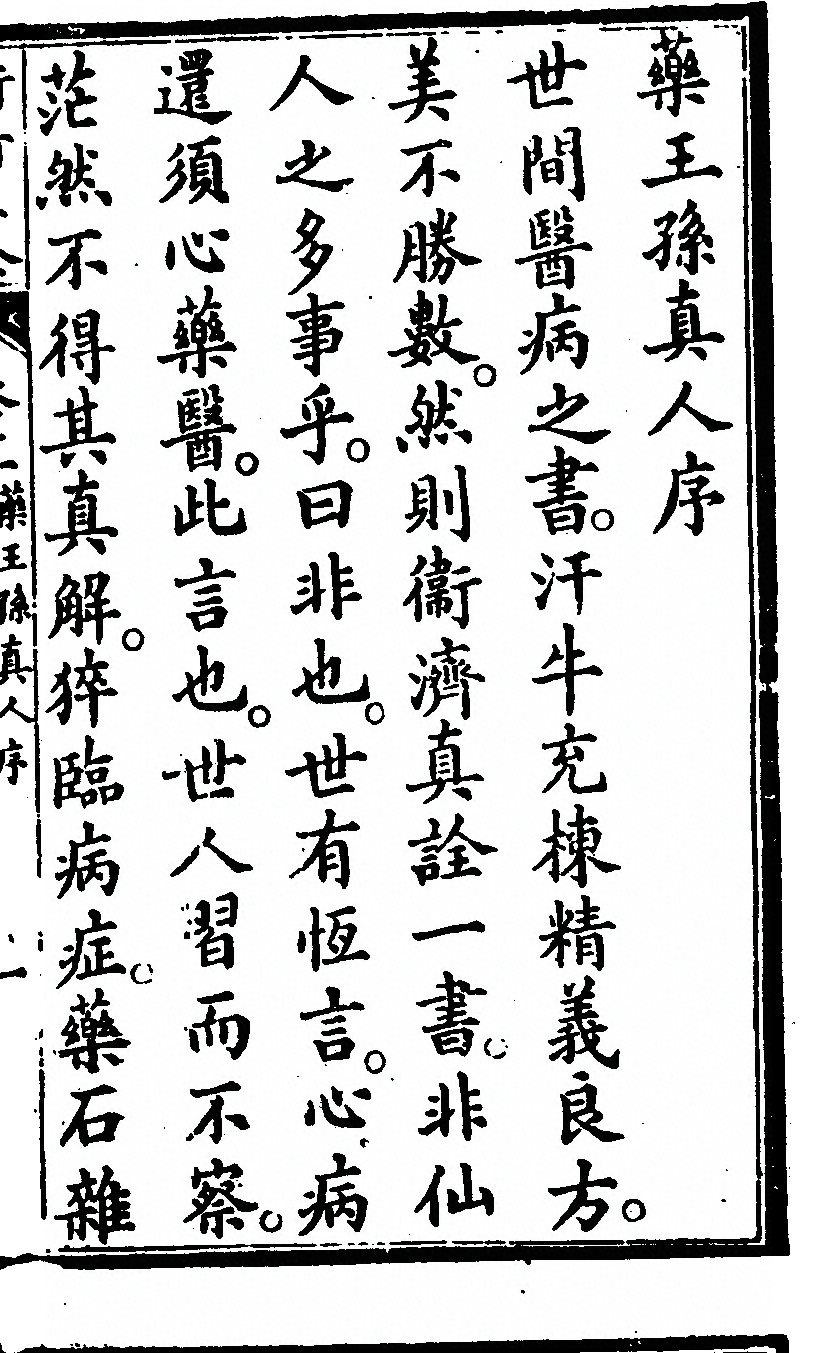 藥王孫真人序
世間醫病之書。汗牛充棟精義良方。
美不勝數。然則衞濟真詮一書。非仙
人之多事乎。曰非也。世有恆言。心病
還須心藥醫。此言也。世人習而不察。
茫然不得其真解。猝臨病症。藥石雜
藥王孫真人序
一